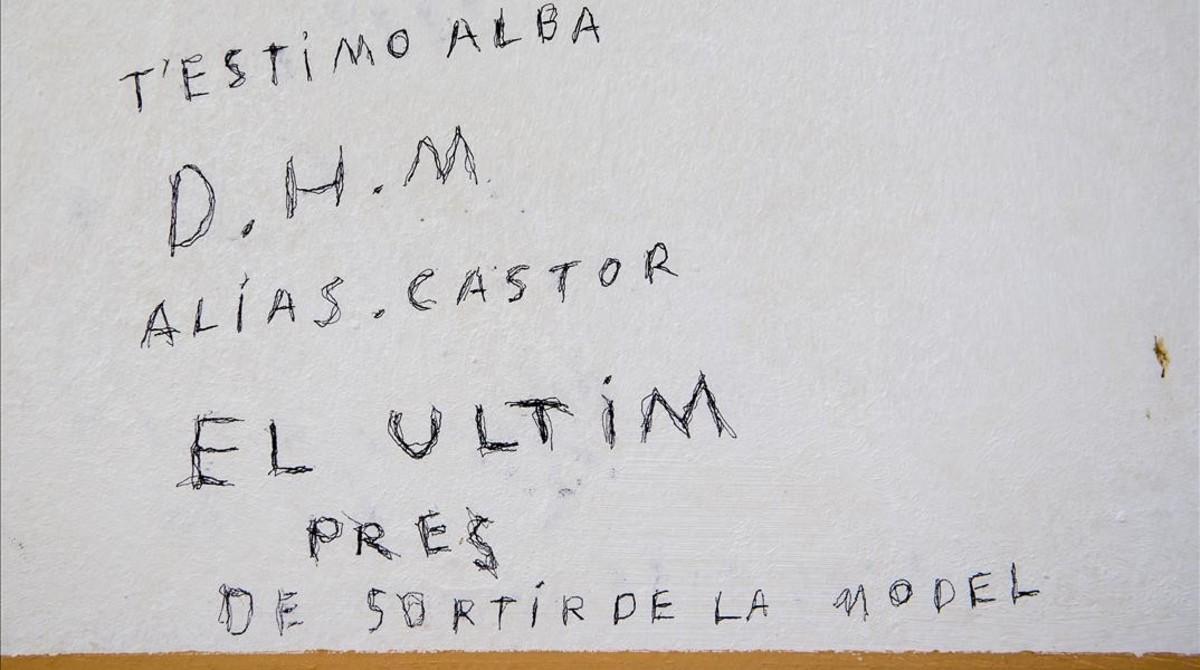 T'ESTiMO ALBA
D.H.M.
ALiAS.CASTOR
EL ULTiM
PRES
DE SORTiR DE LA MODEL